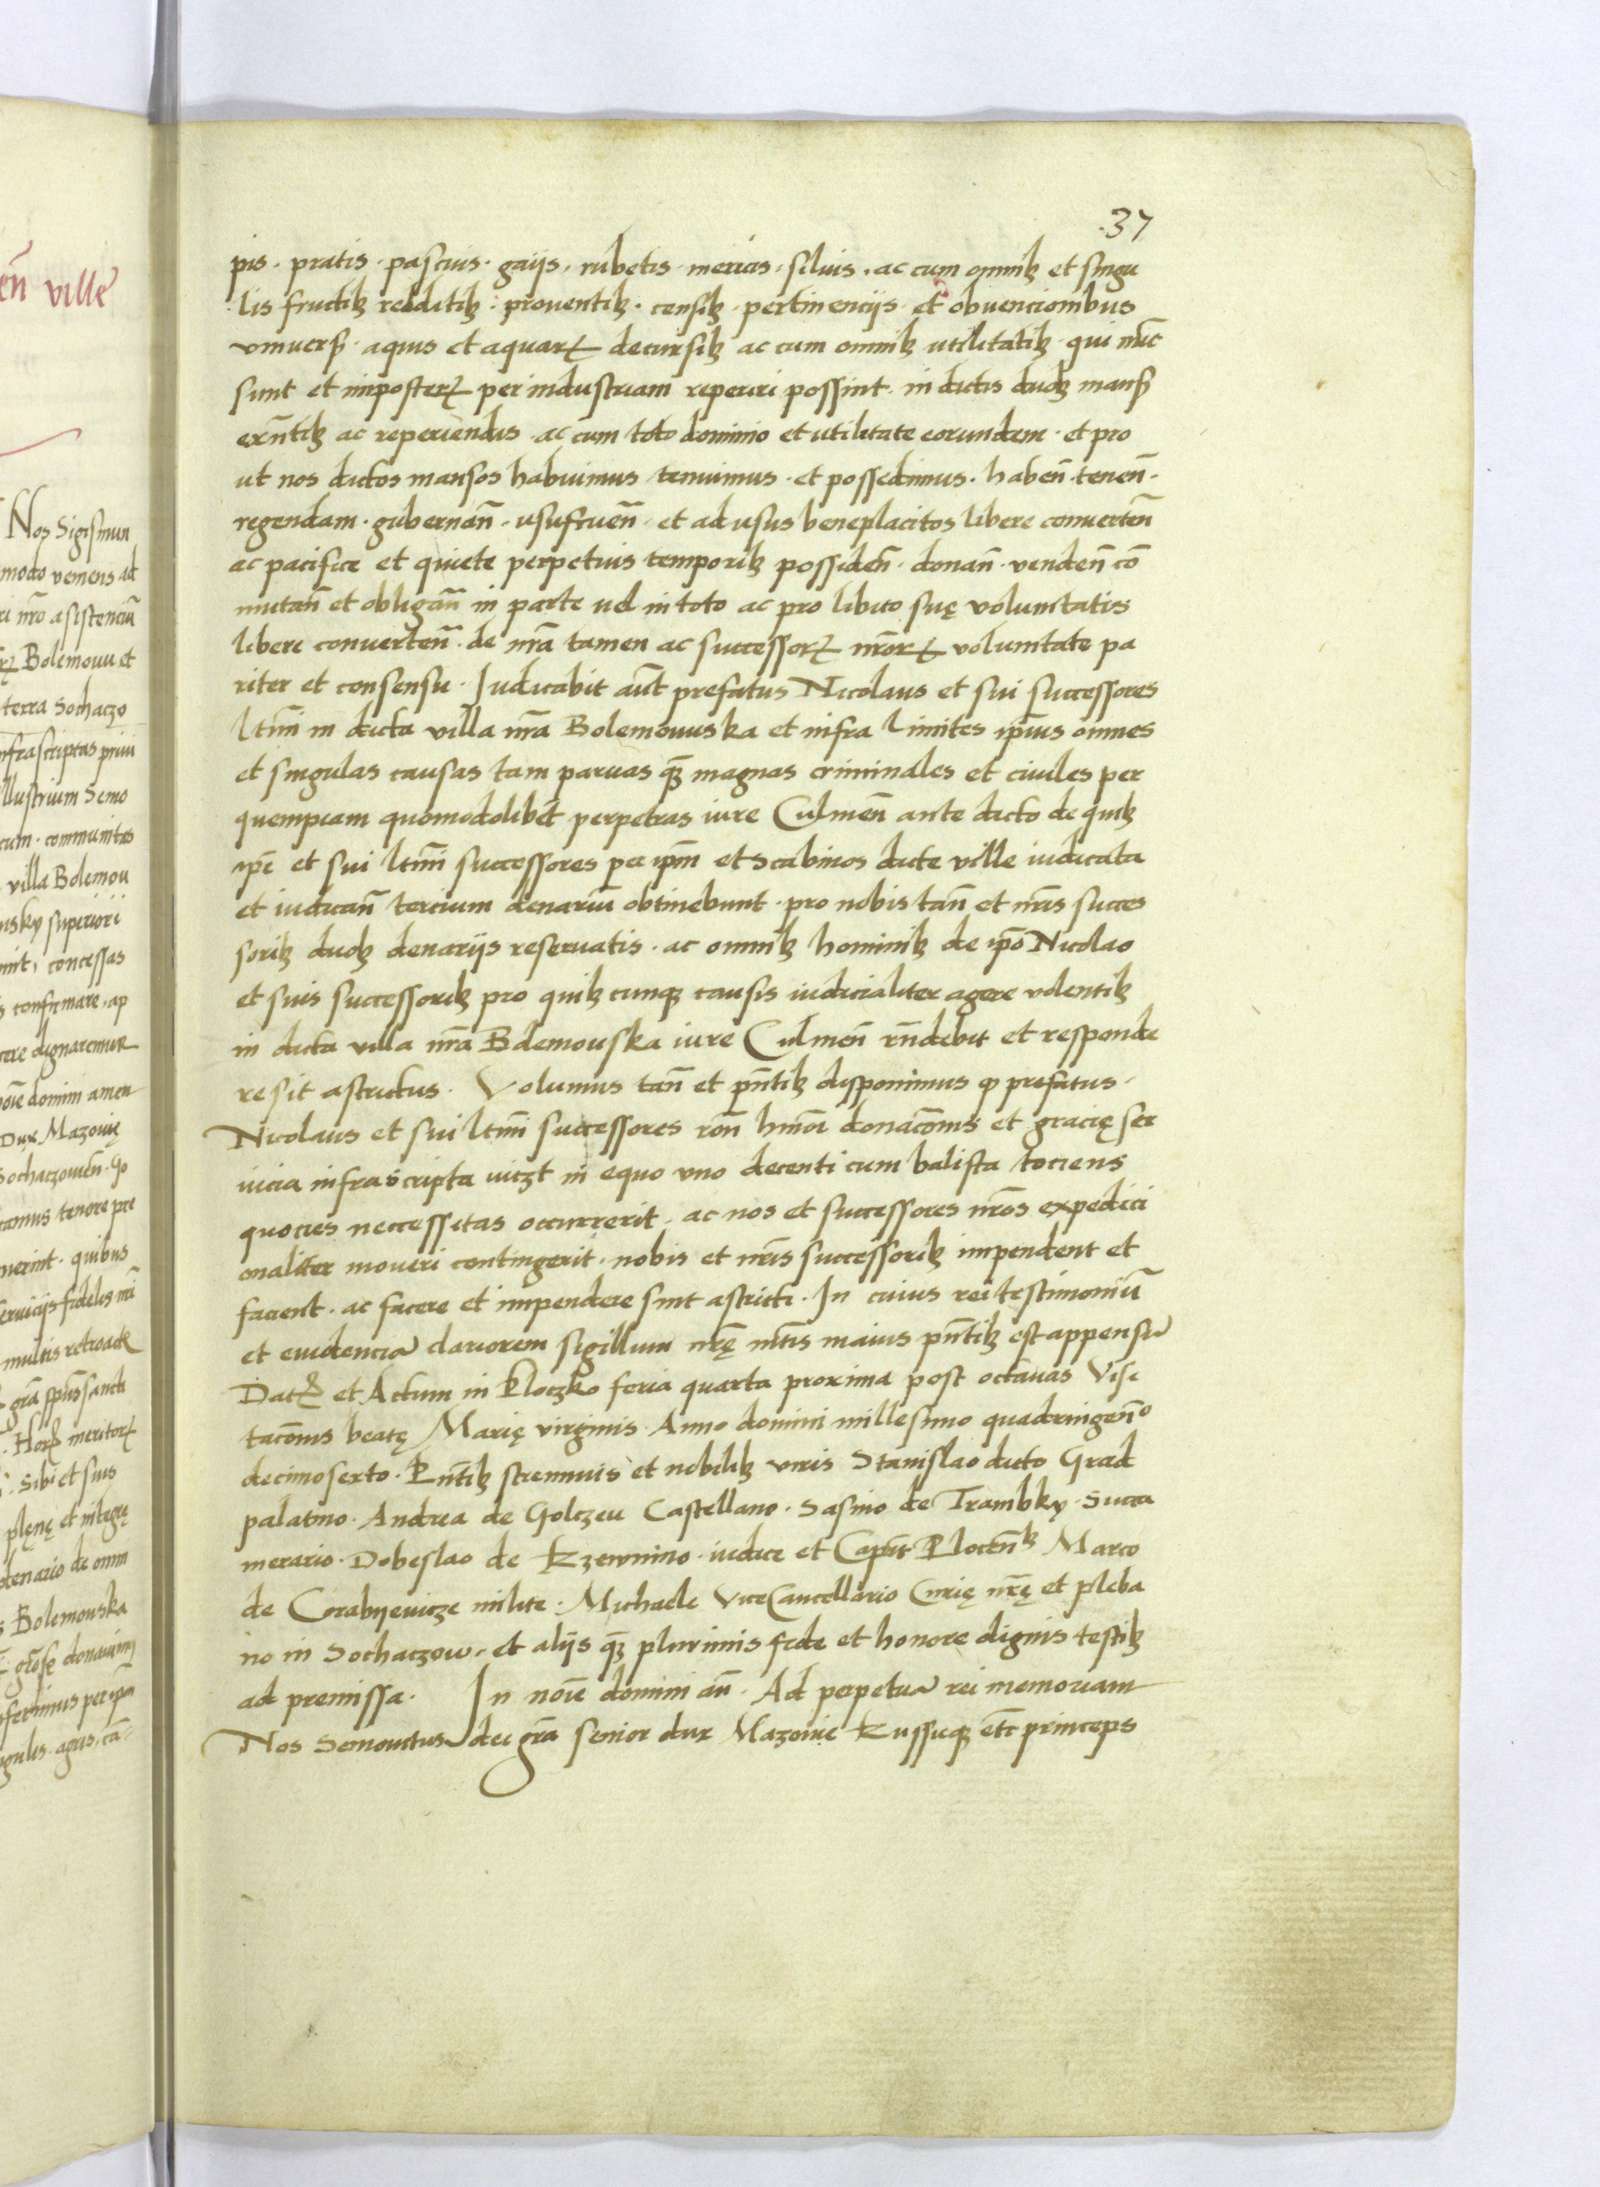 .37
pis · pratis · pascuis · gaijs · rubetis · mericis · siluis · ac cum omnibꝫ et singu
lis fructibꝫ redditibꝫ · prouentibꝫ · censibꝫ · pertinencijs · et obuencionibus
vniuersis · aquis et aquarꝫ decursibꝫ ac cum omnibꝫ vtilitatibꝫ qui nũc
sunt et imposterꝫ per industriam reperiri possint · in dictis duobꝫ mansis
exñtibꝫ ac reperiendis · ac cum toto dominio et utilitate eorundem · et pro
ut nos dictos mansos habuimus tenuimus · et possedimus · habeñ · teneñ ·
regendam · gubernañ · usufrueñ · et ad usus beneplacitos libere conuerteñ
ac pacifice et quiete perpetuis temporibꝫ possideñ · donañ · vendeñ cõ
mutañ et obligañ in parte uel in toto ac pro libito suę voluntatis
libere conuerteñ · de nr̃a tamen ac successorꝫ nr̃orꝫ voluntate pa
riter et consensu · Iudicabit aũt prefatus Nicolaus et sui successores
ltĩmi in dicta villa nr̃a Bolemouuska et infra limites ip̃ius omnes
et singulas causas tam paruas q̃ꝫ magnas criminales et ciuiles per
quempiam quomodolibet perpetras iure Culmeñ ante dicto de quibꝫ
ip̃e et sui ltĩmi successores per ip̃m et scabinos dicte ville iudicata
et iudicañ tercium denariũ obtinebunt · pro nobis tañ et nr̃is succes
soribꝫ duobꝫ denarijs reseruatis · ac omnibꝫ hominibꝫ de ip̃o Nicolao
et suis successoribꝫ pro quibꝫ cunqꝫ causis iudicialiter agere volentibꝫ
in dicta villa nr̃a Bolemouska iure Culmeñ rñdebit et responde
re sit astrictus · Volumus tañ et pñtibꝫ disponimus ꝙ prefatus ·
Nicolaus et sui ltĩmi successores roñ hmõi donacõnis et gracię ser
uicia infrascripta uicꝫt in equo vno decenti cum balista tociens
quocies neccessitas occurrerit · ac nos et successores nr̃os expedici
onaliter moueri contingerit · nobis et nr̃is successoribꝫ impendent et
facient · ac facere et impendere sint astricti · In cuius rei testimoniũ
et euidenciã clariorem sigillum nr̃ę mtis maius pñtibꝫ est appensũ
Datꝫ et Actum in Ploczko feria quarta proxima post octauas Visi
tacõnis beatę Marię virginis · Anno domini millesimo quadringeñº
decimosexto · Pñtibꝫ strennuis et nobilibꝫ viris Stanislao dicto Grad
palatino · Andrea de Golczeu Castellano · Sasino de Trambky · Succa
merario · Dobeslao de Kzewnino · iudice et Capit Ploceñ Marco
de Corabyeuicze milite · Michaele ViceCancellario Curię nr̃ę et pleba
no in Sochaczow · et alijs q̃ꝫ plurimis fide et honore dignis testibꝫ
ad premissa · In noĩe domini añ · Ad perpetuã rei memoriam
Nos Semouitus dei grã senior dux Mazouie Russieqꝫ etc princeps
eñ ville
Nos Sigismun
modo veniens ad
ri nr̃o asistenciũ
Bolemouu et
terra Sochaczo
infrascriptas priui
Illustrium Semo
cum · communites
villa Bolemou
usky superiori
concessas
confirmare · ap
dignaremur
noĩe domini amen
Dux Mazouię
Sochaczouieñ · Go
tenore pre
nerint · quibus
seruicijs fidelis nr̃i
multis retroactꝫ
grã spũs sancti
Horꝫ meritorꝫ
Sibi et suis
plenę et integrę
denario de omni
Bolemouska
grõse donauimꝫ
ferimus per ip̃m
ngulis · agris · cã